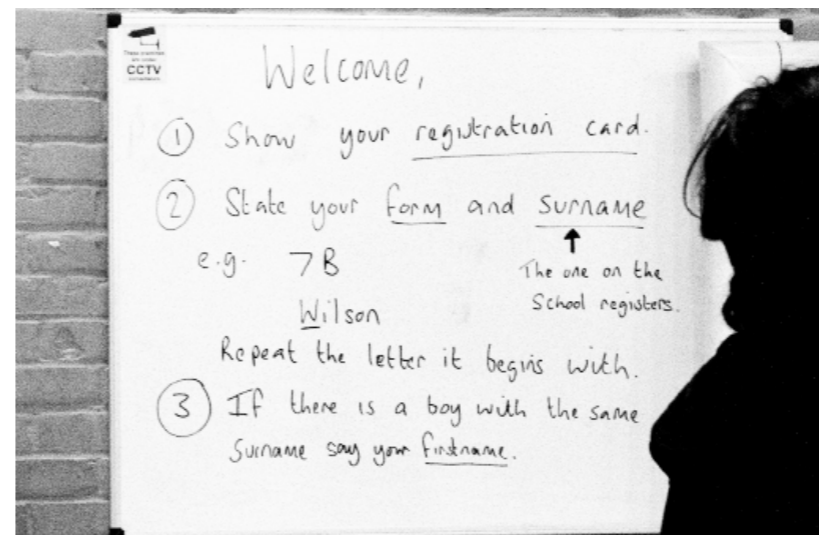 CCTV
Welcome,
① Show your registration card.
② State your form and surname
The one on the
School registers.
e.g. 7B
Wilson
Repeat the letter it begins with.
③ If there is a boy with the same
Surname say your firstname.